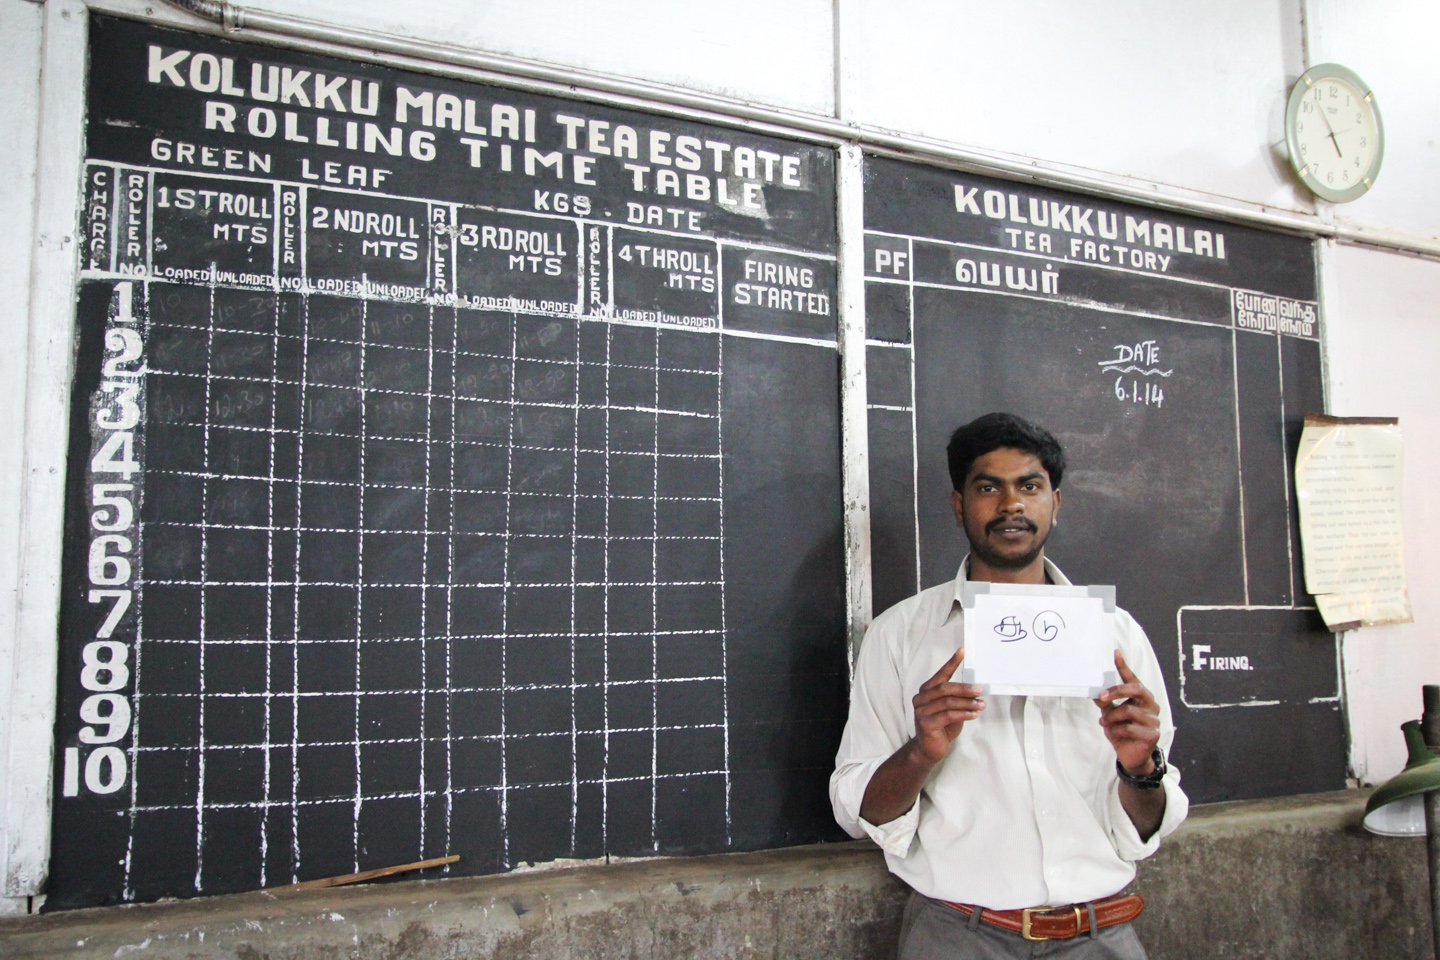 KOLUKKU MALAI TEA ESTATE
ROLLING TIME TABLE
GREEN LEAF KGS. DATE
CHARGE ROLLER NO 1STROLL MTS LOADED UNLOADED ROLLER NO 2NDROLL MTS LOADED UNLOADED ROLLER NO 3RDROLL MTS LOADED UNLOADED ROLLER NO 4THROLL MTS LOADED UNLOADED FIRING STARTED
1
2
3
4
5
6
7
8
9
10
KOLUKKUMALAI
TEA FACTORY
PF பெயர் போன நேரம் வந்த நேரம்
DATE
6.1.14
FIRING.
ஆடு
12 1 2 3 4 5 6 7 8 9 10 11